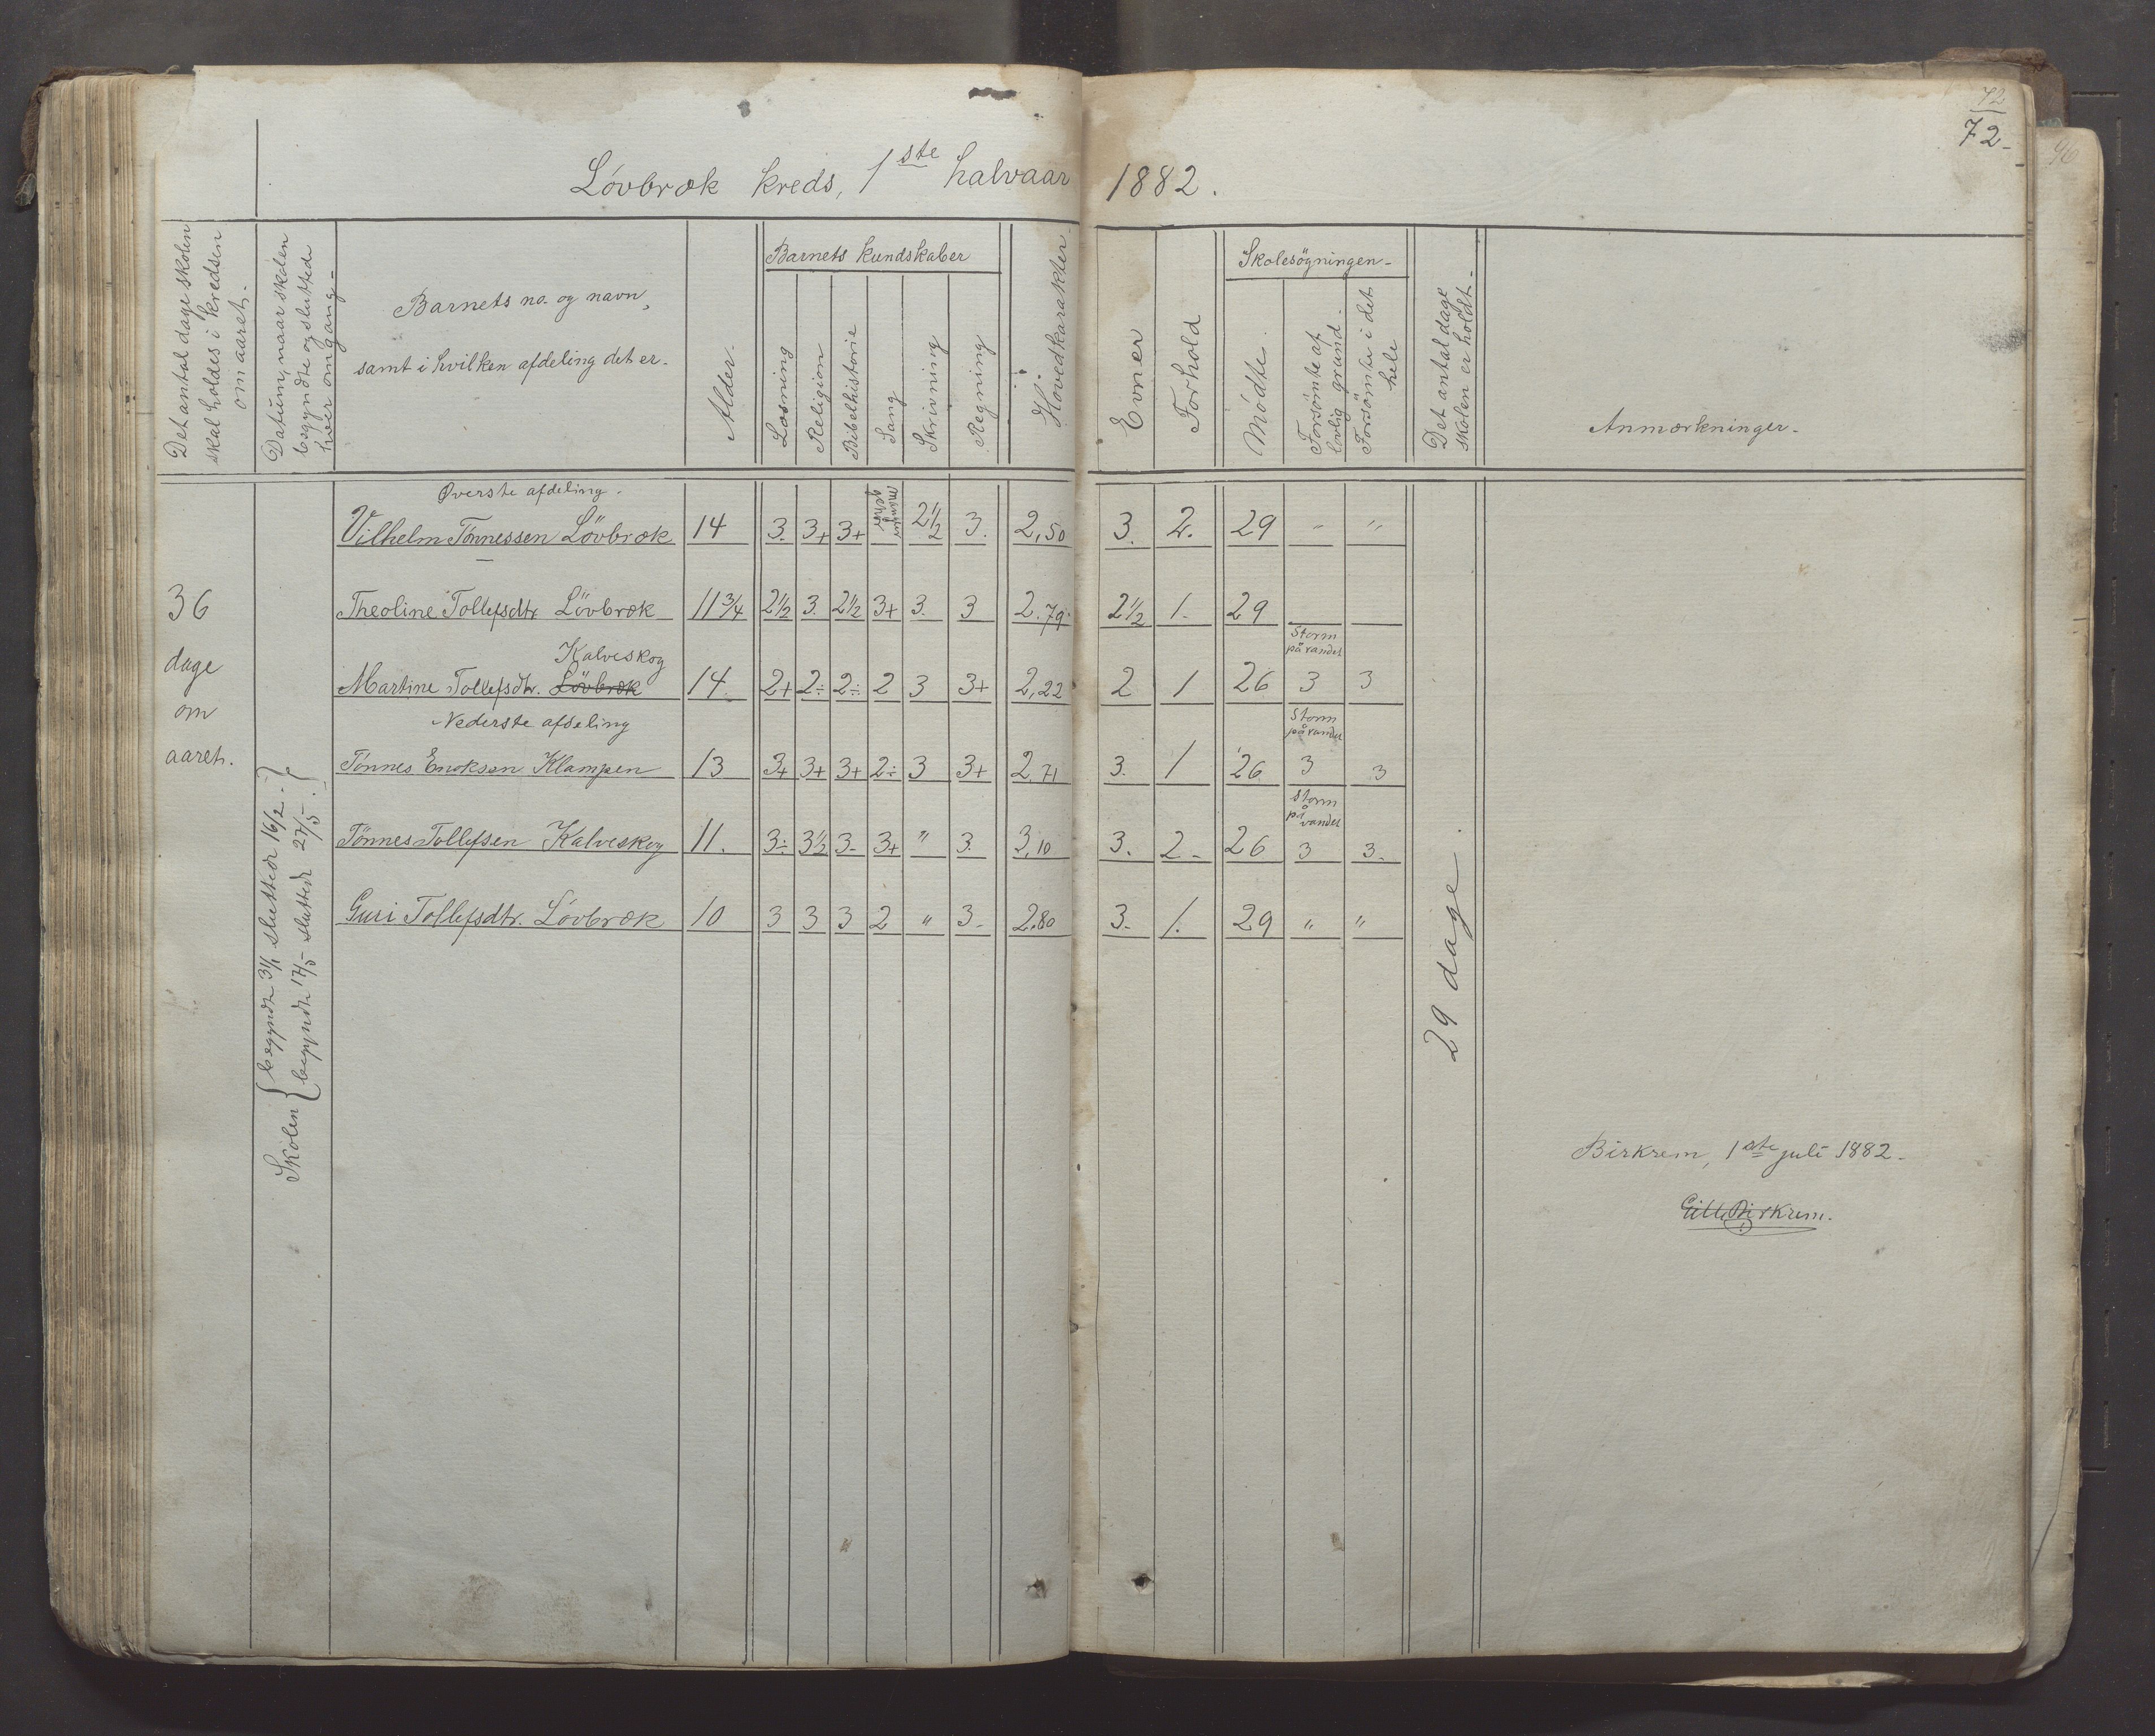 72
72-
96
Lövbræk kreds, 1ste halvaar 1882.
Det antal dage skolen skal holdes i kredsen om aaret.
Datum, naar skolen begyndte og sluttede hver omgang-
Barnets no. og navn,
samt i hvilken afdeling det er-
Alder.
Barnets kundskaber
Læsning
Religion
Bibelhistorie
Sang
Skrivning
Regning
Hovedkarakter
Evner
Forhold
Skolesögningen-
Mödte
Forsömte af lovlig grund.
Forsömte i det hele
Det antal dage skolen er holdt-
Anmærkninger-
Øverste afdeling.
Vilhelm Tönnessen Lövbræk 14 3. 3+ 3+ mangler gehör 2½ 3. 2,50 3. 2. 29 " "
Theoline Tollefsdtr Lövbræk 11¾ 2½ 3. 2½ 3+ 3. 3 2.79 2½ 1- 29
Kalveskog
Storm på vandet
Martine Tollefsdtr. Lövbræk 14 2+ 2÷ 2÷ 2 3 3+ 2,22 2 1 26 3 3
Nederste afdeling
Storm på vandet
Tönnes Enoksen Klampen 13 3+ 3+ 3+ 2÷ 3 3+ 2,71 3. 1 26 3 3
Storm på vandet
Tönnes Tollefsen Kalveskog 11. 3÷ 3½ 3- 3+ " 3. 3,10 3. 2- 26 3 3-
Guri Tollefsdtr. Lövbræk 10 3 3 3 2 " 3- 2,80 3- 1. 29 " "
36
dage
om
aaret.
Skolen { begyndte 31/1 sluttede 16/2 - }
{ begyndte 17/5 - sluttede 27/5. }
29 dage.
Birkrem, 1ste juli 1882-
Birkrem.